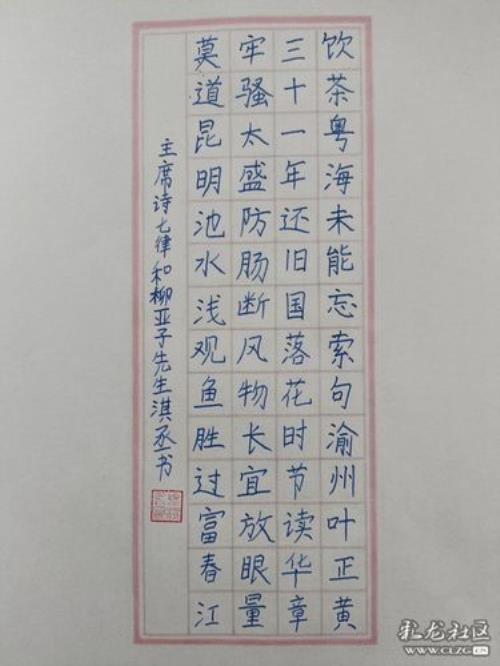 饮茶粤海未能忘索句渝州叶正黄
三十一年还旧国落花时节读华章
牢骚太盛防肠断风物长宜放眼量
莫道昆明池水浅观鱼胜过富春江
主席诗七律和柳亚子先生淇丞书
龙社区
www.CLZG.cn